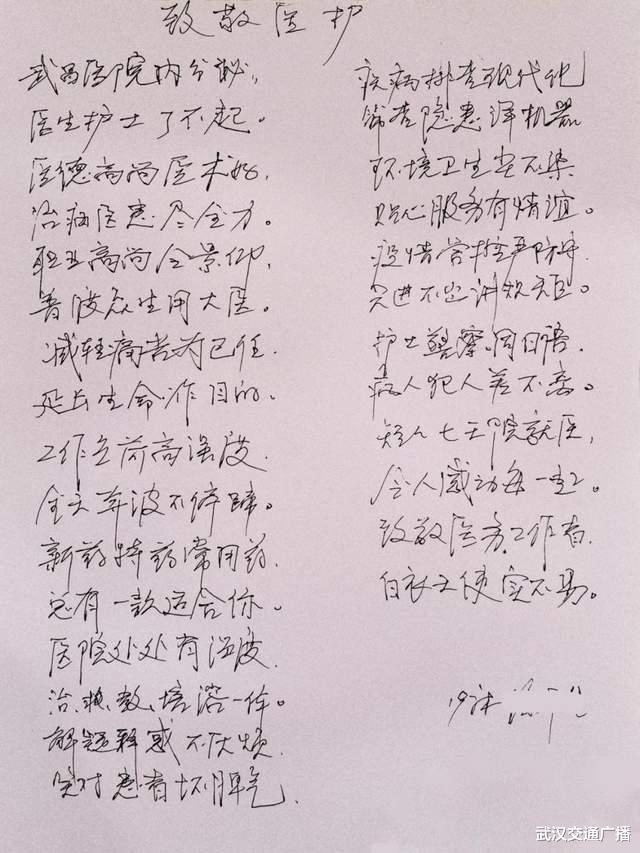 致敬医护
武昌医院内分泌,
医生护士了不起。
医德高尚医术好,
治病医患尽全力。
职业高尚令景仰,
普度众生用大医。
减轻病苦为己任.
延长生命作目的.
工作负荷高强度.
全天奔波不停蹄。
新药特药常用药.
总有一款适合你。
医院处处有温度.
治、教、培溶一体。
解题释惑不厌烦.
笑对患者坏脾气.
疾病排查现代化
筛查隐患洋机器
环境卫生尘不染
贴心服务有情谊。
疫情管控严防守
只进不出讲规矩。
护士警察同日语.
病人犯人差不离。
短短七天院就医,
令人感动每一。
致敬医务工作者.
白衣天使实不易。
19床
武汉交通广播